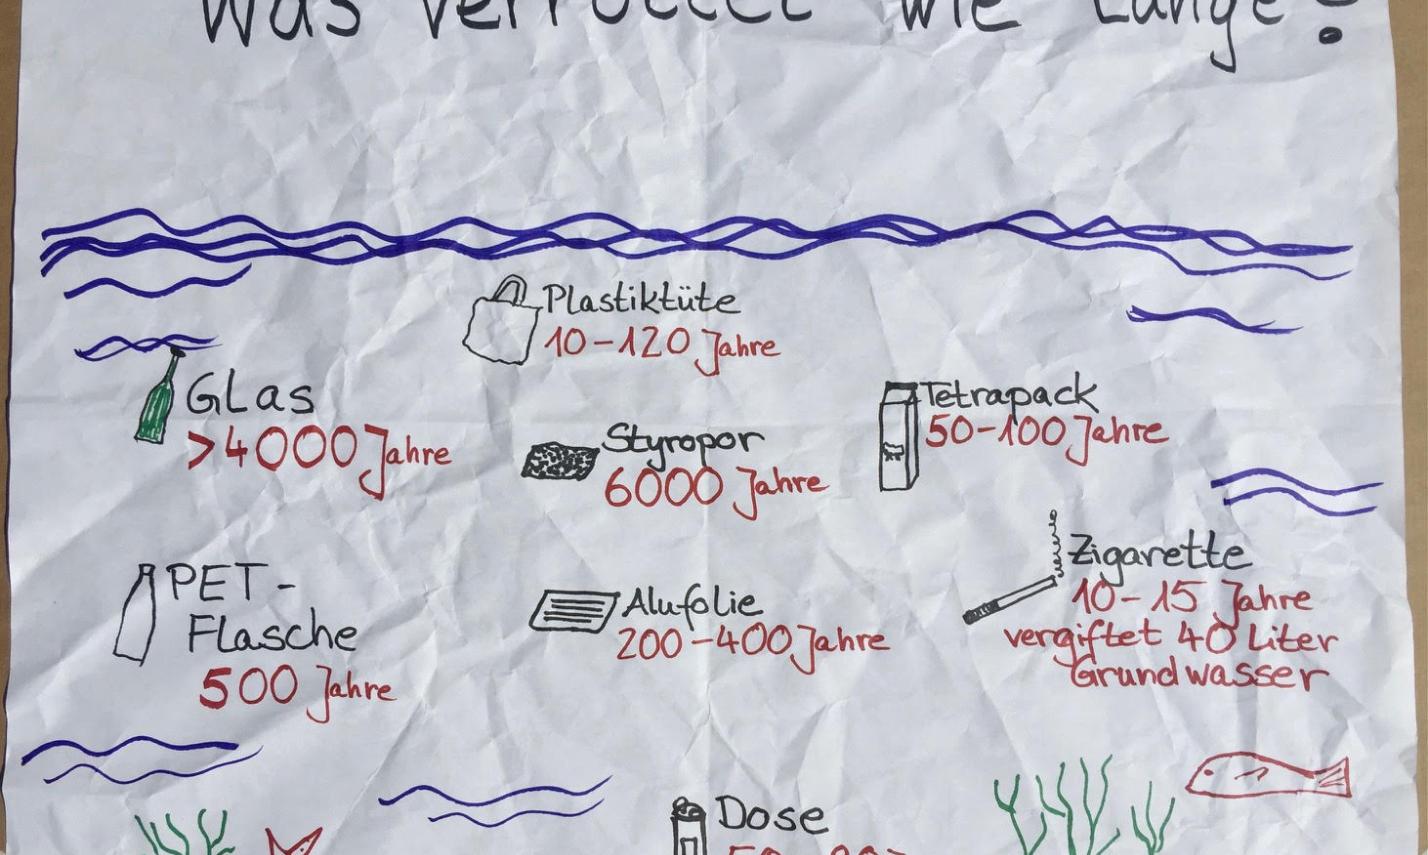 Was verrottet wie lange?
Plastiktüte
10-120 Jahre
Glas
>4000 Jahre
Tetrapack
50-100 Jahre
Styropor
6000 Jahre
Zigarette
10-15 Jahre
vergiftet 40 Liter
Grundwasser
PET-
Flasche
500 Jahre
Alufolie
200-400 Jahre
Dose